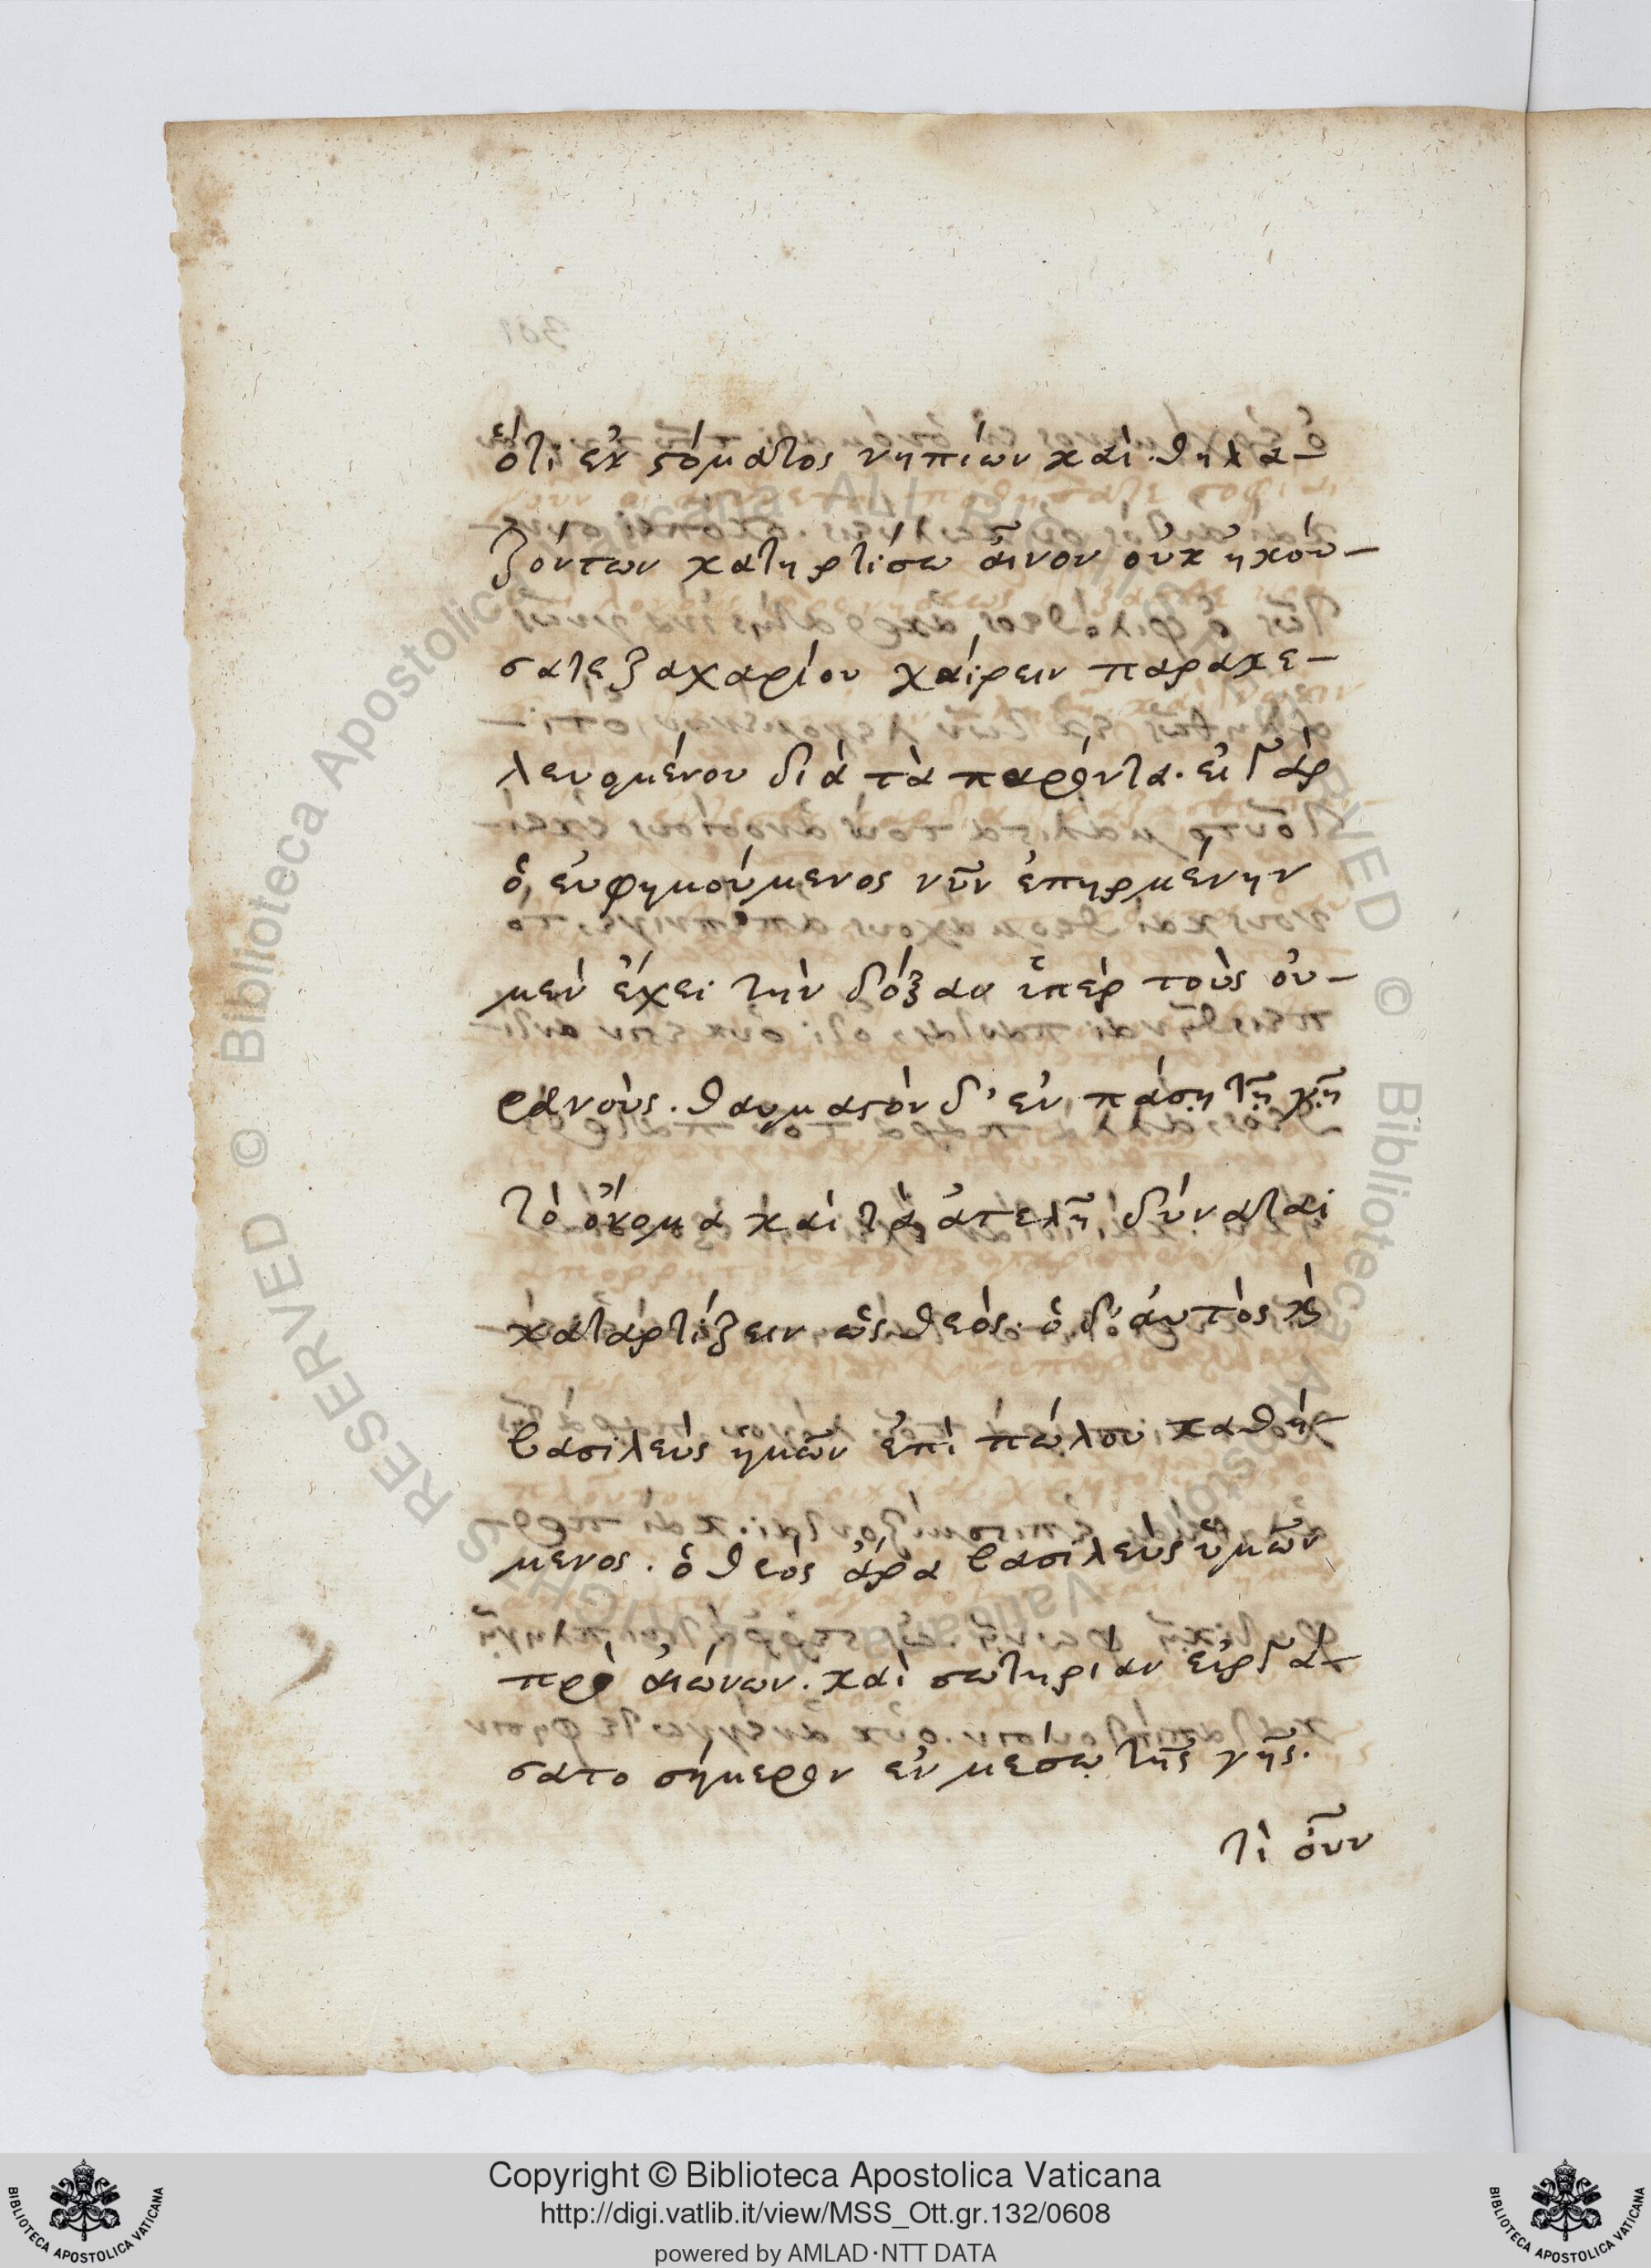 ὅτι ἐκ στόματος νηπίων καὶ θηλα-
ζόντων κατηρτίσω αἶνον οὐκ ἠκού-
σατε ζαχαρίου χαίρειν παρακε-
λευομένου διὰ τὰ παρόντα. εἰ γὰρ
ὁ εὐφημούμενος νῦν ἐπηρμένην
μὲν ἔχει τὴν δόξαν ὑπὲρ τοὺς οὐ-
ρανοὺς. θαυμαστὸν δ' ἐν πάσῃ τῇ γῇ
τὸ ὄνομα καὶ τὰ ἀτελῆ δύναται
καταρτίζειν ὡς θεός. ὁ δ' αὐτὸς κὶ
βασιλεὺς ἡμῶν ἐπὶ πώλου καθή-
μενος. ὁ θεὸς ἄρα βασιλεὺς ὑμῶν
πρὸ αἰώνων. καὶ σωτηρίαν εἰργά-
σατο σήμερον ἐν μέσῳ τῆς γῆς.
τὶ οὖν
RESERVED © Biblioteca Apostolica Vaticana ALL RIGHTS RESERVED © Biblioteca Apostolica Vaticana ALL RIGHTS
Copyright © Biblioteca Apostolica Vaticana
http://digi.vatlib.it/view/MSS_Ott.gr.132/0608
powered by AMLAD·NTT DATA
BIBLIOTECA APOSTOLICA VATICANA
BIBLIOTECA APOSTOLICA VATICANA